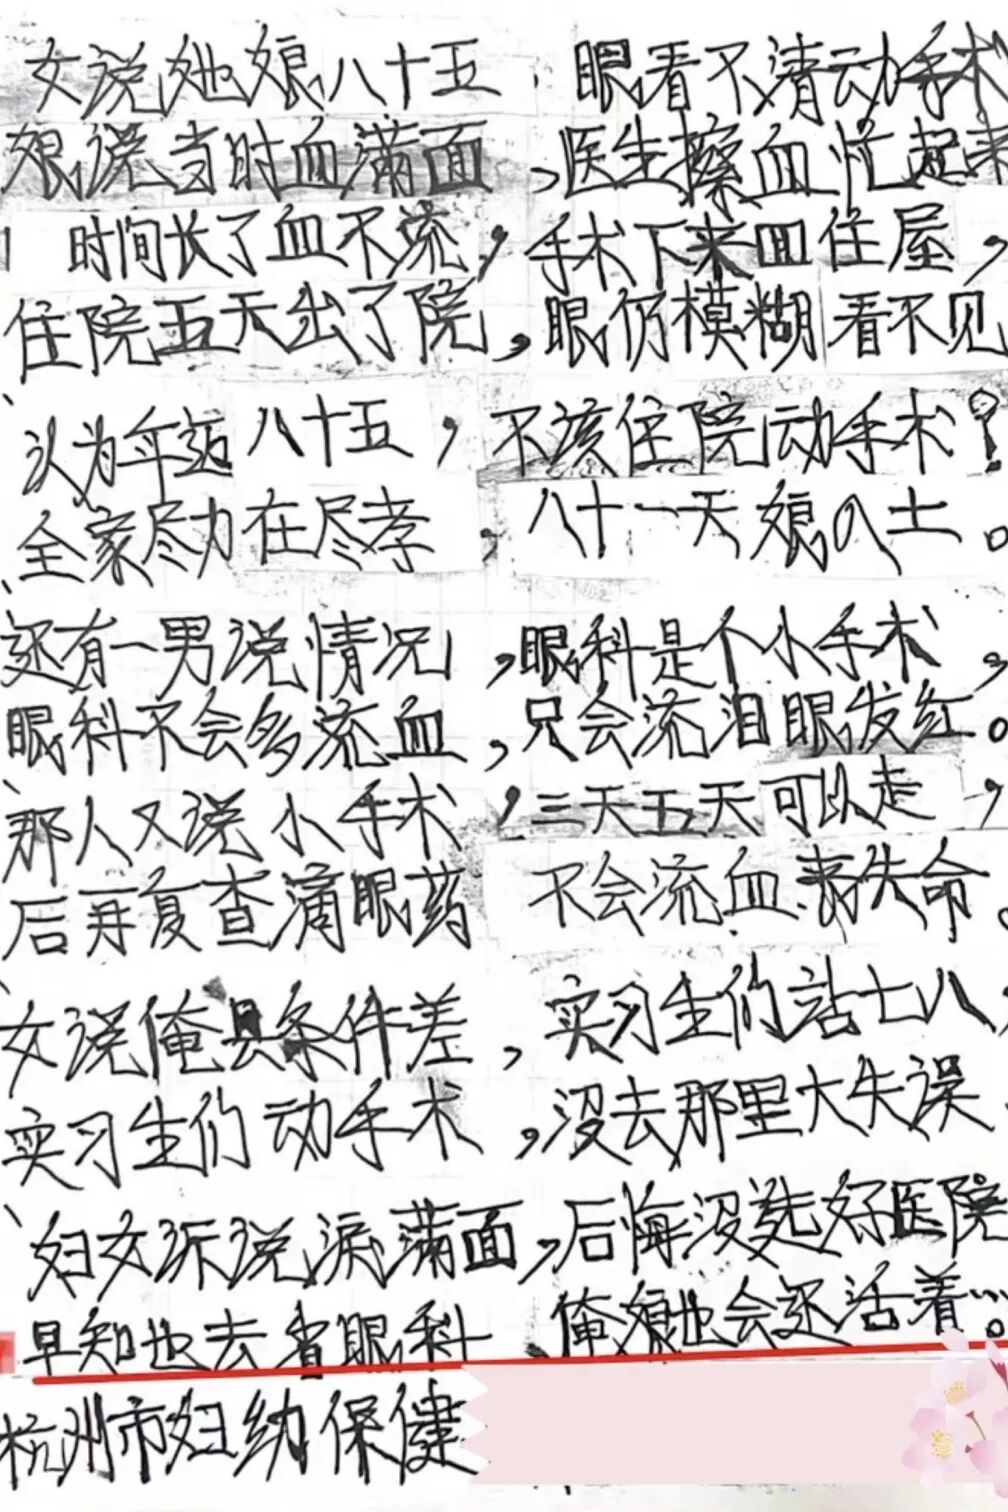 女说她娘八十五 眼看不清动手术
娘说当时血满面，医生擦血忙起来
时间长了血不流，手术下来血住屋，
住院五天出了院，眼仍模糊看不见
认为年迈八十五，不该住院动手术？
全家尽力在尽孝，八十一天娘入土。
还有一男说情况，眼科是个小手术，
眼科不会多流血，只会流泪眼发红。
那人又说小手术，三天五天可以走，
后再复查滴眼药 不会流血丧失命。
女说俺县条件差，实习生们站七八，
实习生们动手术，没去那里大失误
妇女诉说泪满面，后悔没选好医院
早知也去省眼科 俺娘也会还活着…。
杭州市妇幼保健